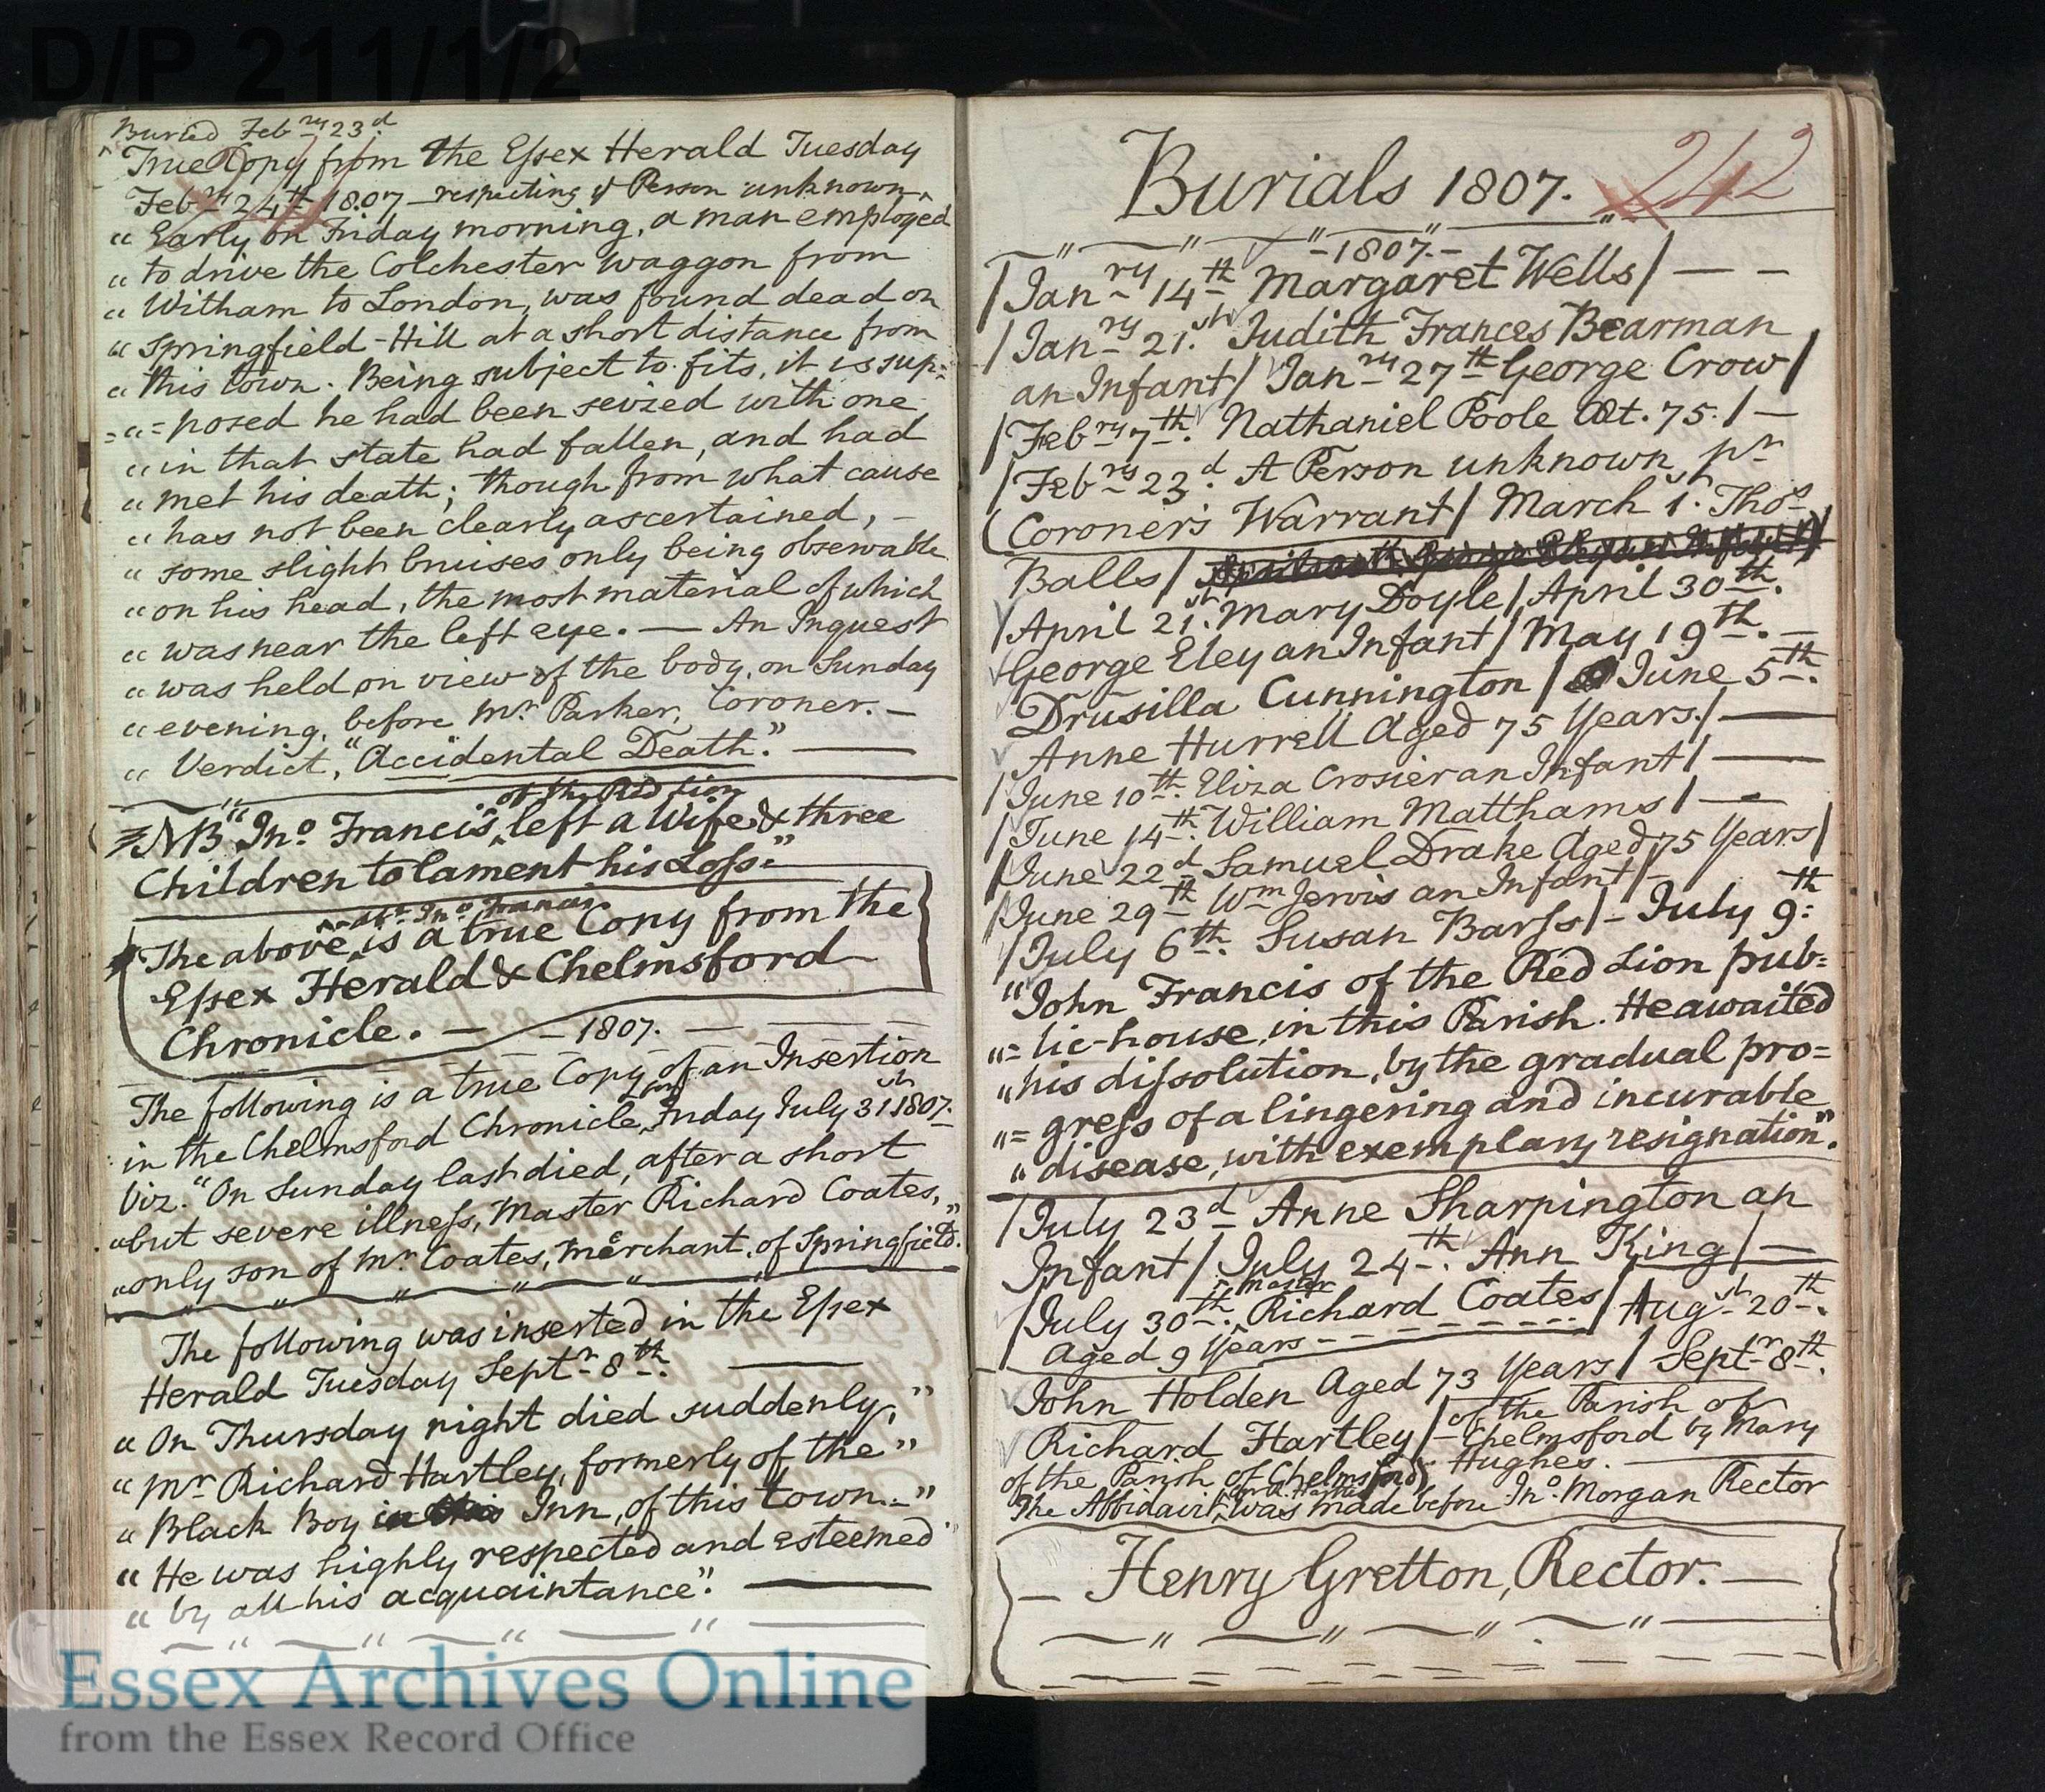 D/P 211/1/2
Buried Febry 23d.
True Copy from the Essex Herald Tuesday
Febry 24th 1807 respecting ye Person unknown
“ Early on Friday morning, a man employed
“ to drive the Colchester waggon from
“ Witham to London, was found dead on
“ Springfield-Hill at a short distance from
“ this town. Being subject to fits, it is sup=
=“=posed he had been seized with one
“ in that state had fallen, and had
“ met his death; though from what cause
“ has not been clearly ascertained, –
“ some slight bruises only being observable
“ on his head, the most material of which
“ was near the left eye. — An Inquest
“ was held on view of the body, on Sunday
“ evening, before Mr Parker, Coroner. –
“ Verdict, “Accidental Death.” —
of the Red Lion
NB “Jno. Francis, left a Wife & three
Children to lament his Loss.”
Jno Francis
The above is a true Copy from the
Essex Herald & Chelmsford
Chronicle. — – 1807. —
The following is a true Copy of an Insertion
in the Chelmsford Chronicle, Friday July 31st 1807.
Viz. “On Sunday last died, after a short
“but severe illness, Master Richard Coates,”
“only son of Mr Coates, merchant, of Springfield.
The following was inserted in the Essex
Herald Tuesday Septr 8th. —
“ On Thursday night died suddenly,”
“ Mr Richard Hartley, formerly of the”
“ Black Boy Inn, of this town.”
“ He was highly respected and esteemed
“ by all his acquaintance”. —
Burials 1807. 242
–1807.–
/Janry 14th Margaret Wells/ — –
/Janry 21st Judith Frances Bearman
an Infant/ Janry 27th George Crow/
/Febry 7th. Nathaniel Poole Æt. 75./ —
/Febry 23d. A Person unknown, pr
Coroner's Warrant/ March 1st Thos
Balls/
/April 21st. Mary Doyle/ April 30th.
George Eley an Infant/ May 19th. –
Drusilla Cunnington/ June 5th.
Anne Hurrell Aged 75 Years./ —
/June 10th. Eliza Crosier an Infant/ —
/June 14th. William Matthams/ —
/June 22d Samuel Drake Aged 75 Years/
/June 29th Wm Jervis an Infant/
/July 6th. Susan Barss/– July 9th:
“John Francis of the Red Lion pub=
“=lic-house, in this Parish. He awaited
“his dissolution, by the gradual pro=
“=gress of a lingering and incurable
“disease, with exemplary resignation”.
/July 23d Anne Sharpington an
Infant/ July 24th. Ann King/ —
Master
/July 30th. Richard Coates/ Augst 20th.
Aged 9 Years
John Holden Aged 73 Years/ Septr 8th.
Richard Hartley/ of the Parish of
Chelmsford by Mary
Hughes.
of the Parish of Chelmsford
The Affidavit was made before Jno. Morgan Rector
– Henry Gretton, Rector. —
Essex Archives Online
from the Essex Record Office